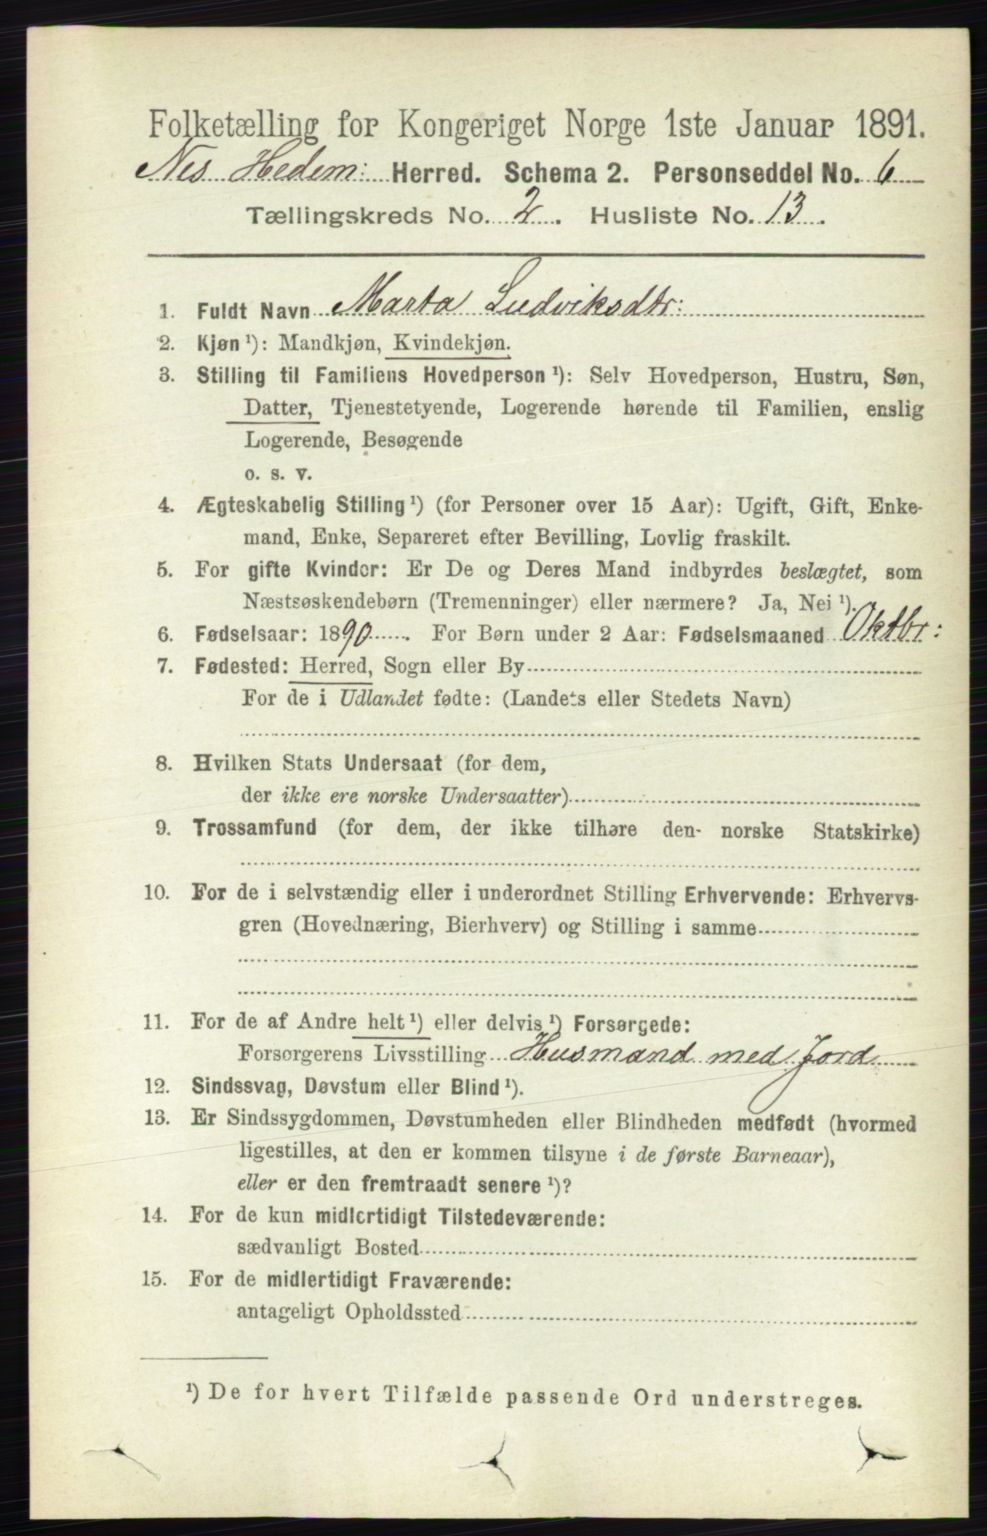 Folketælling for Kongeriget Norge 1ste Januar 1891.
Nes Hedem: Herred. Schema 2. Personseddel No. 6
Tællingskreds No. 2. Husliste No. 13.
1. Fuldt Navn Marta Ludviksdtr:
2. Kjøn ¹): Mandkjøn, Kvindekjøn.
3. Stilling til Familiens Hovedperson ¹): Selv Hovedperson, Hustru, Søn,
Datter, Tjenestetyende, Logerende hørende til Familien, enslig
Logerende, Besøgende
o. s. v.
4. Ægteskabelig Stilling ¹) (for Personer over 15 Aar): Ugift, Gift, Enke-
mand, Enke, Separeret efter Bevilling, Lovlig fraskilt.
5. For gifte Kvinder: Er De og Deres Mand indbyrdes beslægtet, som
Næstsøskendebørn (Tremenninger) eller nærmere? Ja, Nei ¹).
6. Fødselsaar: 1890. For Børn under 2 Aar: Fødselsmaaned Oktbr:
7. Fødested: Herred, Sogn eller By
For de i Udlandet fødte: (Landets eller Stedets Navn)
8. Hvilken Stats Undersaat (for dem,
der ikke ere norske Undersaatter)
9. Trossamfund (for dem, der ikke tilhøre den norske Statskirke)
10. For de i selvstændig eller i underordnet Stilling Erhvervende: Erhvervs-
gren (Hovednæring, Bierhverv) og Stilling i samme
11. For de af Andre helt ¹) eller delvis ¹) Forsørgede:
Forsørgerens Livsstilling Husmand med Jord
12. Sindssvag, Døvstum eller Blind ¹).
13. Er Sindssygdommen, Døvstumheden eller Blindheden medfødt (hvormed
ligestilles, at den er kommen tilsyne i de første Barneaar),
eller er den fremtraadt senere ¹)?
14. For de kun midlertidigt Tilstedeværende:
sædvanligt Bosted
15. For de midlertidigt Fraværende:
antageligt Opholdssted
¹) De for hvert Tilfælde passende Ord understreges.